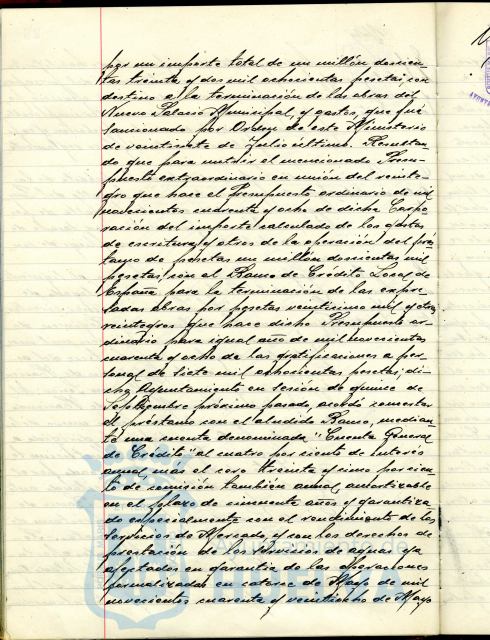 por un importe total de un millón doscien-
tas treinta y dos mil ochocientas pesetas, con
destino a la terminación de las obras del
Nuevo Palacio Municipal, y gastos, que fué
sancionado por Orden de este Ministerio
de veintisiete de Julio último. Resultan-
do que para nutrir el mencionado Presu-
puesto extraordinario en unión del reinte-
gro que hace el Presupuesto ordinario de mil
novecientos cuarenta y ocho de dicha Corpo-
ración del importe calculado de los gastos
de escritura y otros de la operación del prés-
tamo de pesetas un millón doscientas mil
pesetas, con el Banco de Crédito Local de
España para la terminación de las expre-
sadas obras por pesetas veinticinco mil y otro
reintegros que hace dicho Presupuesto or-
dinario para igual año de mil novecientos
cuarenta y ocho de las gratificaciones a per-
sonal de siete mil ochocientas pesetas; di-
cho Ayuntamiento en sesión de quince de
Septiembre próximo pasado, acordó concertar
el préstamo con el aludido Banco, median-
te una cuenta denominada "Cuenta General
de Crédito" al cuatro por ciento de interés
anual más el cero treinta y cinco por cien-
to de comisión también anual, amortizable
en el plazo de cincuenta años y garantiza
do especialmente con el rendimiento de los
Servicios de Mercado, y con los derechos de
prestación de los servicios de aguas ya
afectados en garantía de las operaciones
formalizadas en catorce de Mayo de mil
novecientos cuarenta y veintiocho de Mayo